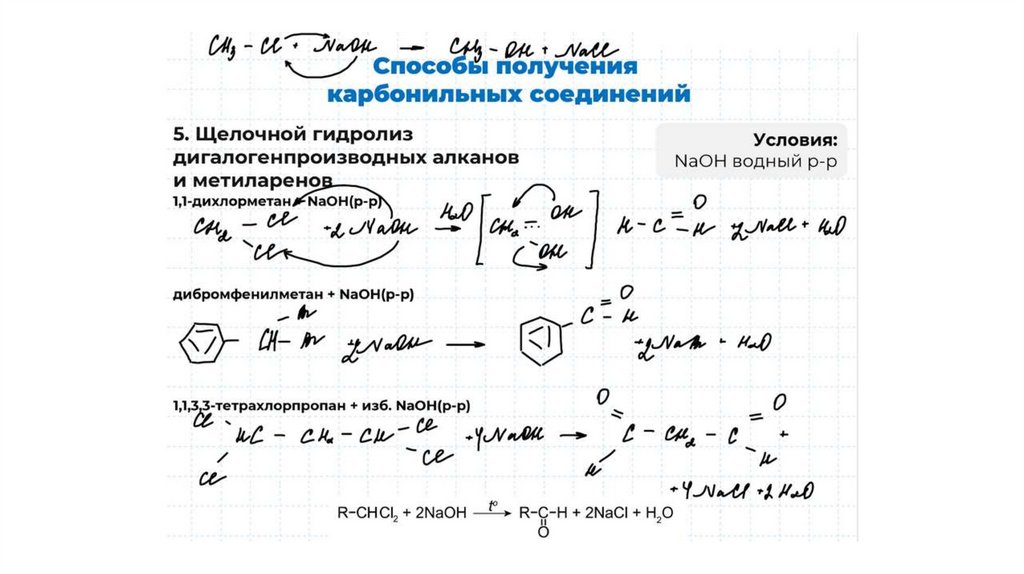 CH3 – Cl + NaOH → CH3 – OH + NaCl
Способы получения
карбонильных соединений
5. Щелочной гидролиз
дигалогенпроизводных алканов
и метиларенов
Условия:
NaOH водный р-р
1,1-дихлорметан + NaOH(р-р)
CH2 – Cl – Cl +2 NaOH → H2O [CH2 – OH – OH] H – C = O – H +2 NaCl + H2O
дибромфенилметан + NaOH(р-р)
CH – Br – Br +2NaOH → C = O – H +2NaBr + H2O
1,1,3,3-тетрахлорпропан + изб. NaOH(р-р)
Cl – Cl – HC – CH2 – CH – Cl – Cl +4NaOH → O = C – H – CH2 – C = O – H +
+4 NaCl +2 H2O
R–CHCl2 + 2NaOH t° → R–C–H + 2NaCl + H2O
O